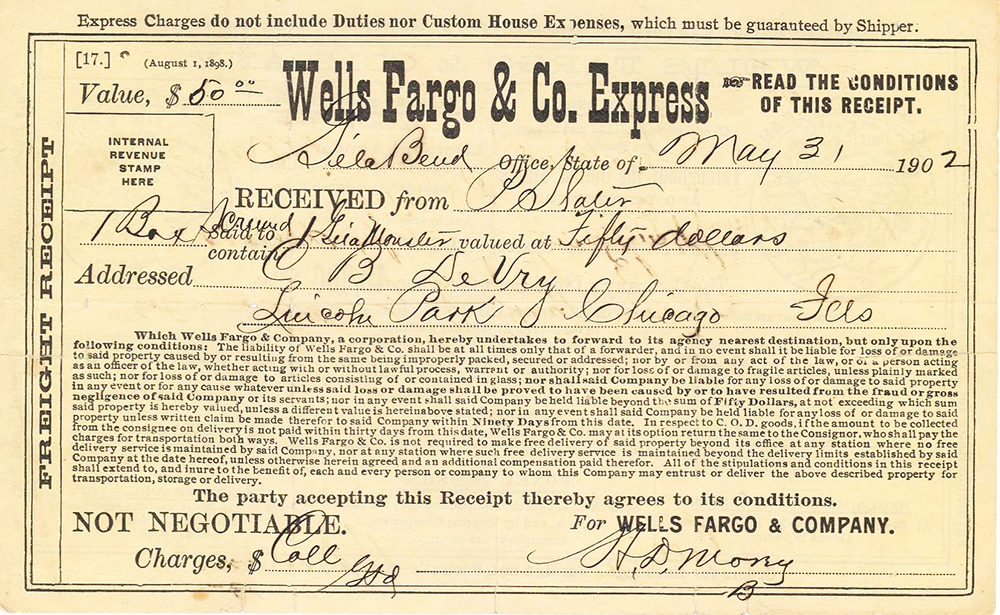 Express Charges do not include Duties nor Custom House Expenses, which must be guaranteed by Shipper.
[17.] (August 1, 1898.)
Value, $ 50 00
Wells Fargo & Co. Express
READ THE CONDITIONS
OF THIS RECEIPT.
INTERNAL
REVENUE
STAMP
HERE
FREIGHT RECEIPT
Gila Bend Office, State of May 31 1902
RECEIVED from P Slater
1 Box said to contain 1 Gila Monster valued at Fifty dollars
Addressed C B DeVry
Lincoln Park Chicago Ills
Which Wells Fargo & Company, a corporation, hereby undertakes to forward to its agency nearest destination, but only upon the
following conditions: The liability of Wells Fargo & Co. shall be at all times only that of a forwarder, and in no event shall it be liable for loss of or damage
to said property caused by or resulting from the same being improperly packed, secured or addressed; nor by or from any act of the law, or of a person acting
as an officer of the law, whether acting with or without lawful process, warrant or authority; nor for loss of or damage to fragile articles, unless plainly marked
as such; nor for loss of or damage to articles consisting of or contained in glass; nor shall said Company be liable for any loss of or damage to said property
in any event or for any cause whatever unless said loss or damage shall be proved to have been caused by or to have resulted from the fraud or gross
negligence of said Company or its servants; nor in any event shall said Company be held liable beyond the sum of Fifty Dollars, at not exceeding which sum
said property is hereby valued, unless a different value is hereinabove stated; nor in any event shall said Company be held liable for any loss of or damage to said
property unless written claim be made therefor to said Company within Ninety Days from this date. In respect to C. O. D. goods, if the amount to be collected
from the consignee on delivery is not paid within thirty days from this date, Wells Fargo & Co. may at its option return the same to the Consignor, who shall pay the
charges for transportation both ways. Wells Fargo & Co. is not required to make free delivery of said property beyond its office at any station where no free
delivery service is maintained by said Company, nor at any station where such free delivery service is maintained beyond the delivery limits established by said
Company at the date hereof, unless otherwise herein agreed and an additional compensation paid therefor. All of the stipulations and conditions in this receipt
shall extend to, and inure to the benefit of, each and every person or company to whom this Company may entrust or deliver the above described property for
transportation, storage or delivery.
The party accepting this Receipt thereby agrees to its conditions.
NOT NEGOTIABLE.
For WELLS FARGO & COMPANY.
Charges, $ Coll